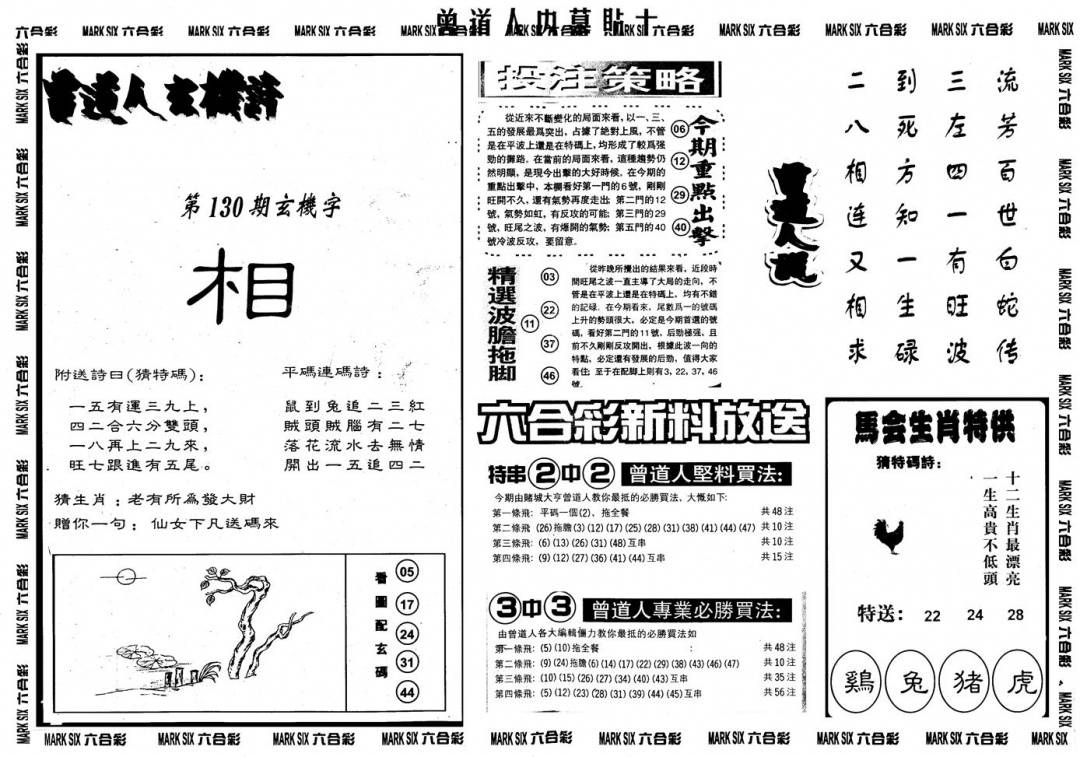 曾道人内幕貼士
六合彩 MARK SIX 六合彩 MARK SIX 六合彩 MARK SIX 六合彩 MARK SIX 六合彩 MARK SIX 六合彩 MARK SIX 六合彩 MARK SIX 六合彩 MARK SIX 六合彩 MARK SIX 六合彩 MARK SIX
曾道人玄機詩
第130期玄機字
相
附送詩曰(猜特碼):
一五有運三九上,
四二合六分雙頭,
一八再上二九來,
旺七跟進有五尾。
平碼連碼詩:
鼠到兔追二三紅
賊頭賊腦有二七
落花流水去無情
開出一五追四二
猜生肖:老有所為發大財
贈你一句:仙女下凡送碼來
看圖配玄碼
05
17
24
31
44
投注策略
從近來不斷變化的局面來看,以一、三、
五的發展最爲突出,占據了絶對上風,不管
是在平波上還是在特碼上,均形成了較爲强
勁的舞路。在當前的局面來看,這種趨勢仍
然明顯,是現今出擊的大好時候。在今期的
重點出擊中,本欄看好第一門的6號,剛剛
旺開不久、還有氣勢再度走出;第二門的12
號,氣勢如虹,有反攻的可能;第三門的29
號,旺尾之波,有爆開的氣勢;第五門的40
號冷波反攻,要留意。
今期重點出擊
06
12
29
40
精選波膽拖脚
03
22
11
37
46
從昨晚所攪出的結果來看,近段時
間旺尾之波一直主導了大局的走向,不
管是在平波上還是在特碼上,均有不錯
的記録。在今期看來,尾數爲一的號碼
上升的勢頭很大,必定是今期首選的號
碼,看好第二門的11號,后勁極强,且
前不久剛剛反攻開出,根據此波一向的
特點,必定還有發展的后勁,值得大家
看住;至于在配脚上則有3,22,37,46
號。
六合彩新料放送
特串2中2 曾道人堅料買法:
今期由賭城大亨曾道人教你最抵的必勝買法,大慨如下:
第一條飛: 平碼一個(2)、拖全餐 共48注
第二條飛 (26)拖膽(3)(12)(17)(25)(28)(31)(38)(41)(44)(47) 共10注
第三條飛: (6)(13)(26)(31)(48)互串 共10注
第四條飛: (9)(12)(27)(36)(41)(44)互串 共15注
3中3 曾道人專業必勝買法:
由曾道人各大編輯儷力教你最抵的必勝買法如
第一條飛: (5)(10)拖全餐 共48注
第二條飛: (9)(24)拖膽(6)(14)(17)(22)(29)(38)(43)(46)(47) 共10注
第三條飛: (10)(15)(26)(27)(34)(40)(43)互串 共35注
第四條飛: (5)(12)(23)(28)(31)(39)(44)(45)互串 共56注
流芳百世白蛇传
三左四一有旺波
到死方知一生碌
二八相连又相求
曾道人說
馬会生肖特供
猜特碼詩:
十二生肖最漂亮
一生高貴不低頭
特送: 22 24 28
鷄 兔 猪 虎
MARK SIX 六合彩 MARK SIX 六合彩 MARK SIX 六合彩 MARK SIX 六合彩 MARK SIX 六合彩 MARK SIX 六合彩 MARK SIX 六合彩 MARK SIX 六合彩 MARK SIX 六合彩 MARK SIX